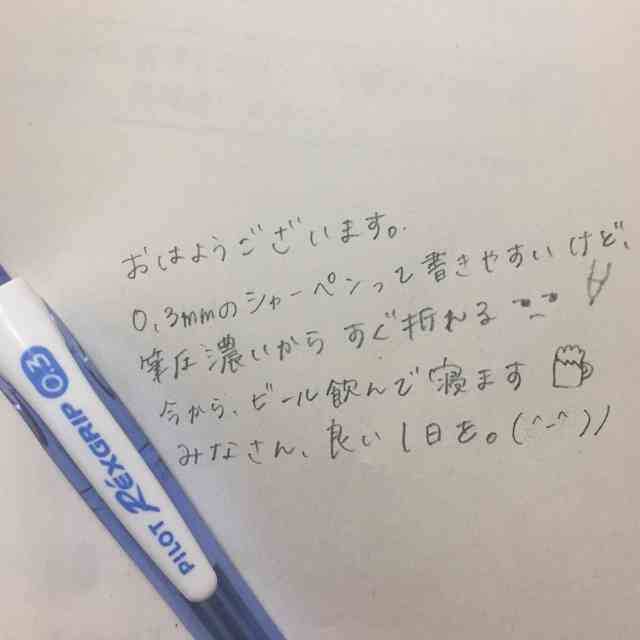 おはようございます。
0.3mmのシャーペンって書きやすいけど、
筆圧濃いからすぐ折れる
今から、ビール飲んで寝ます
みなさん、良い1日を。(^-^)ノ
PILOT RéXGRIP 0.3